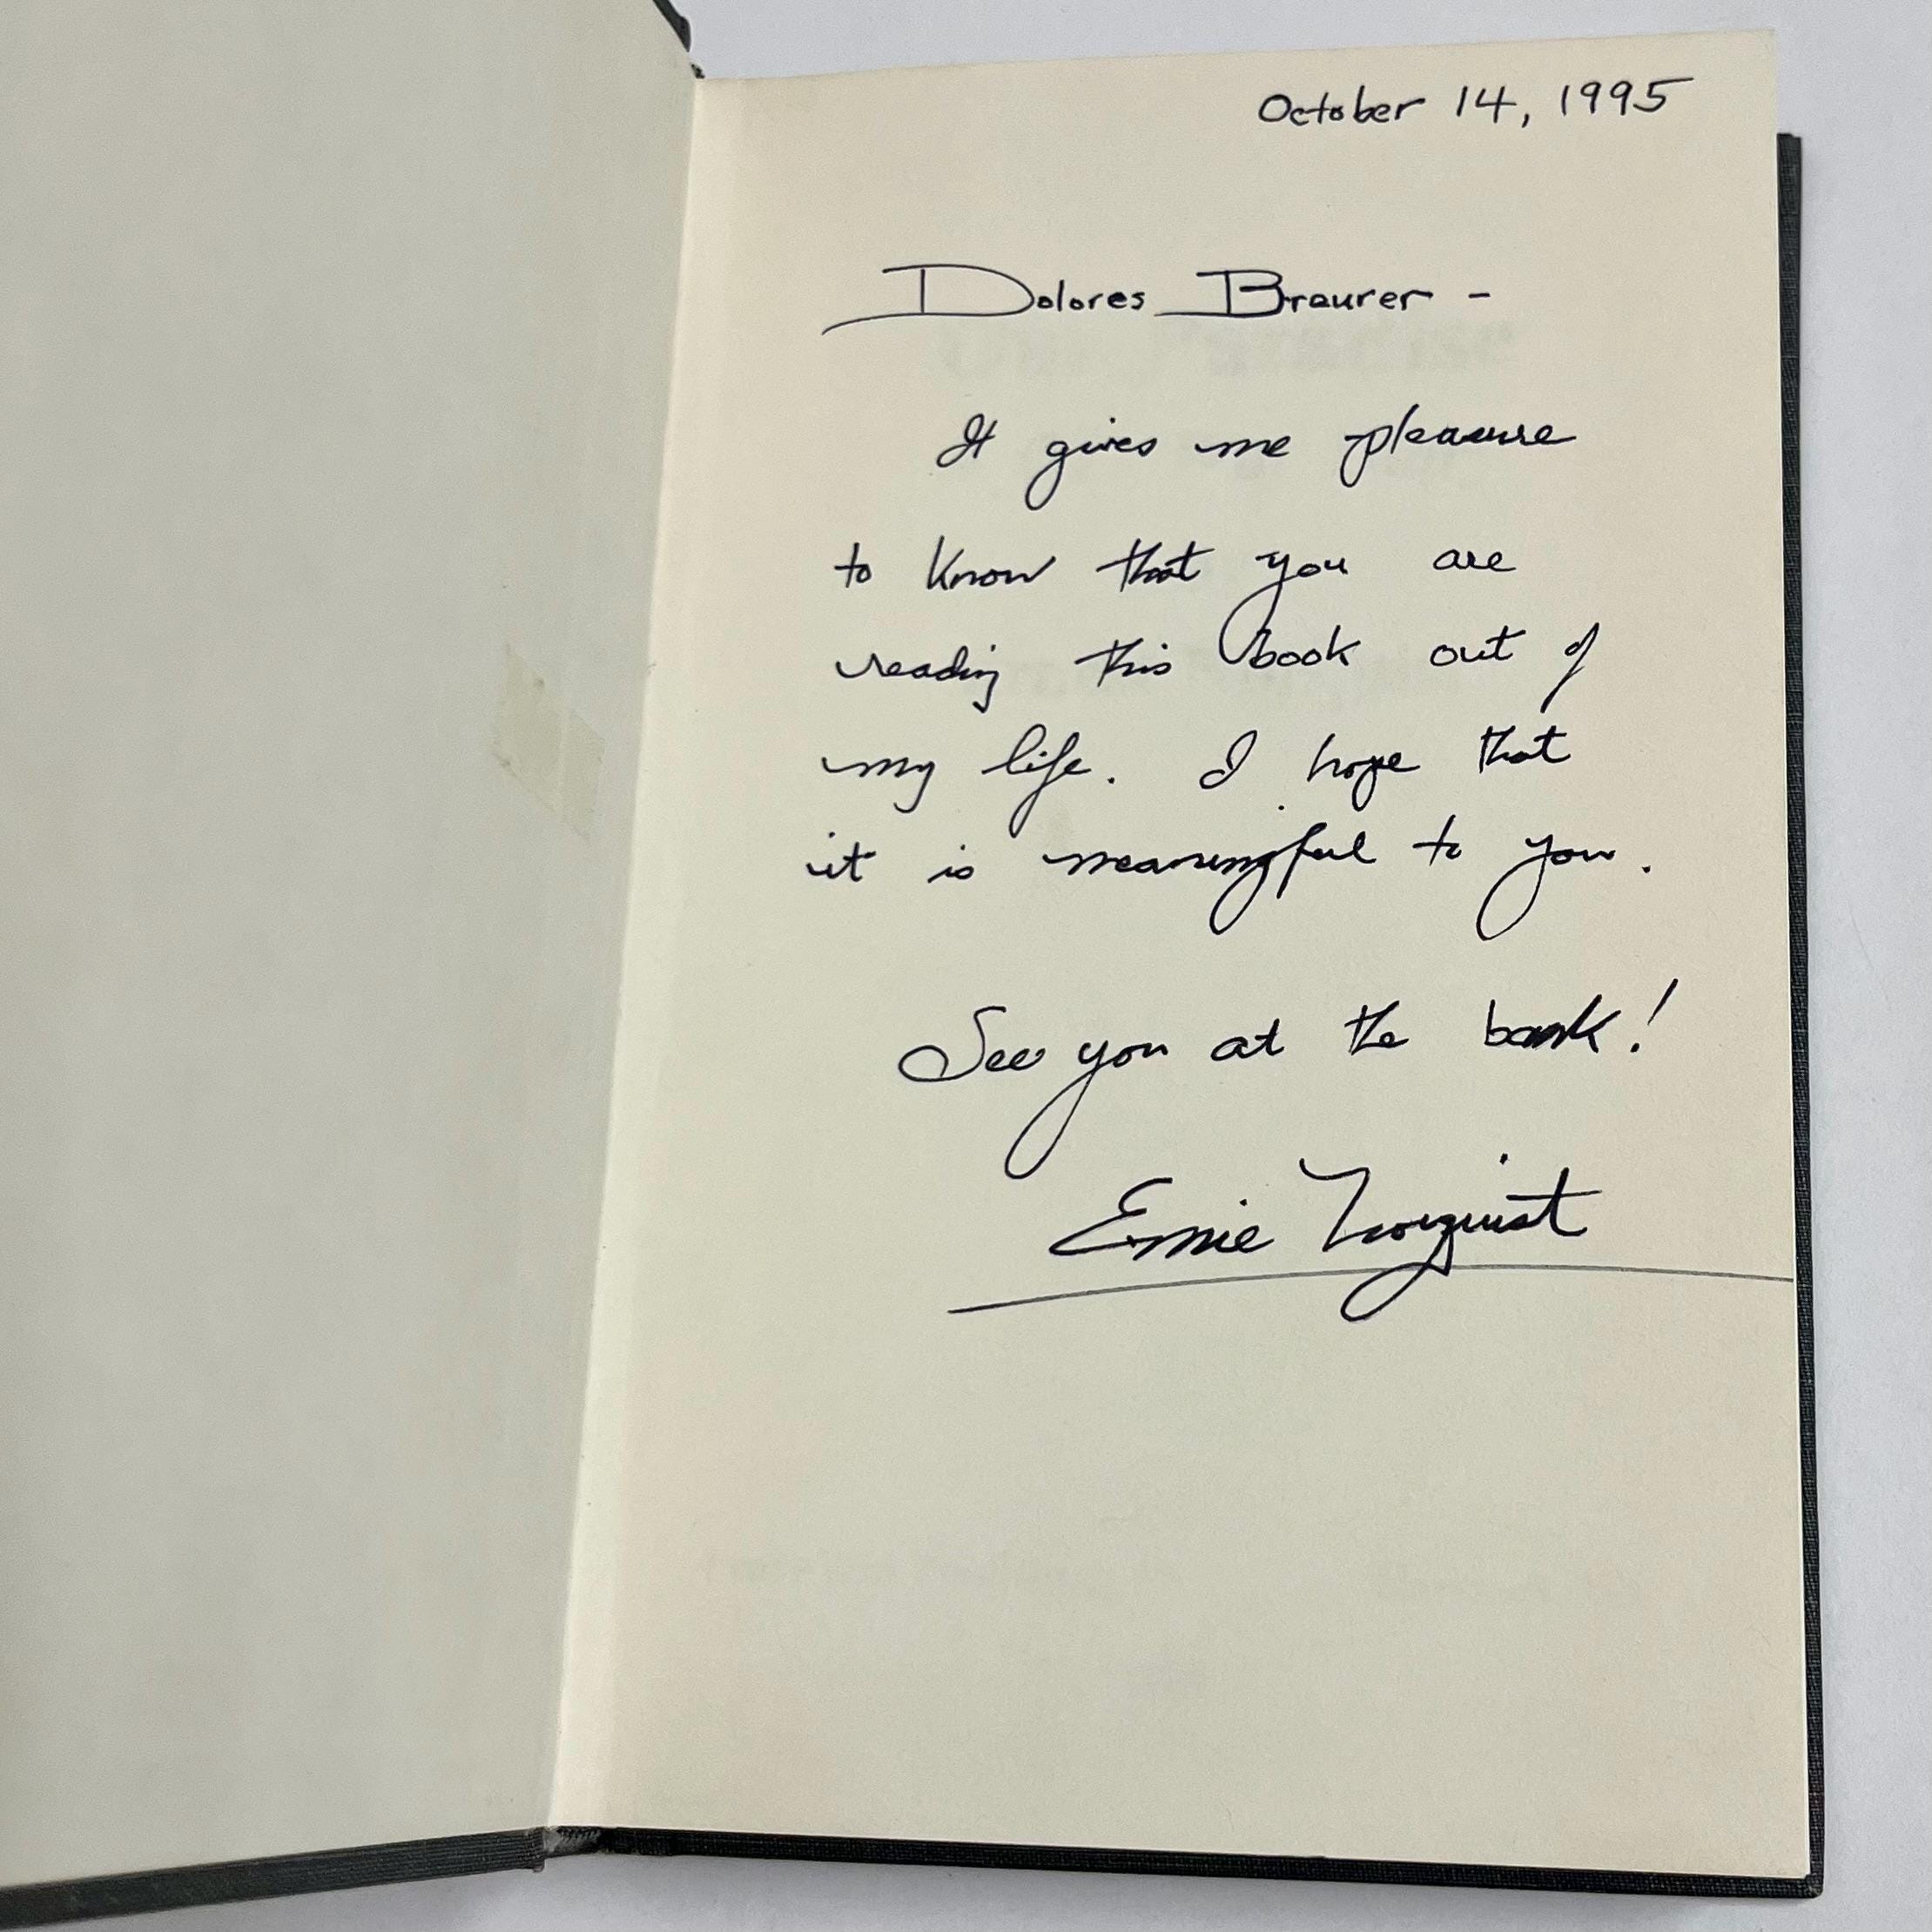 October 14, 1995
Dolores Braurer -
It gives me pleasure
to know that you are
reading this book out of
my life. I hope that
it is meaningful to you.
See you at the bank!
Ernie Norquist